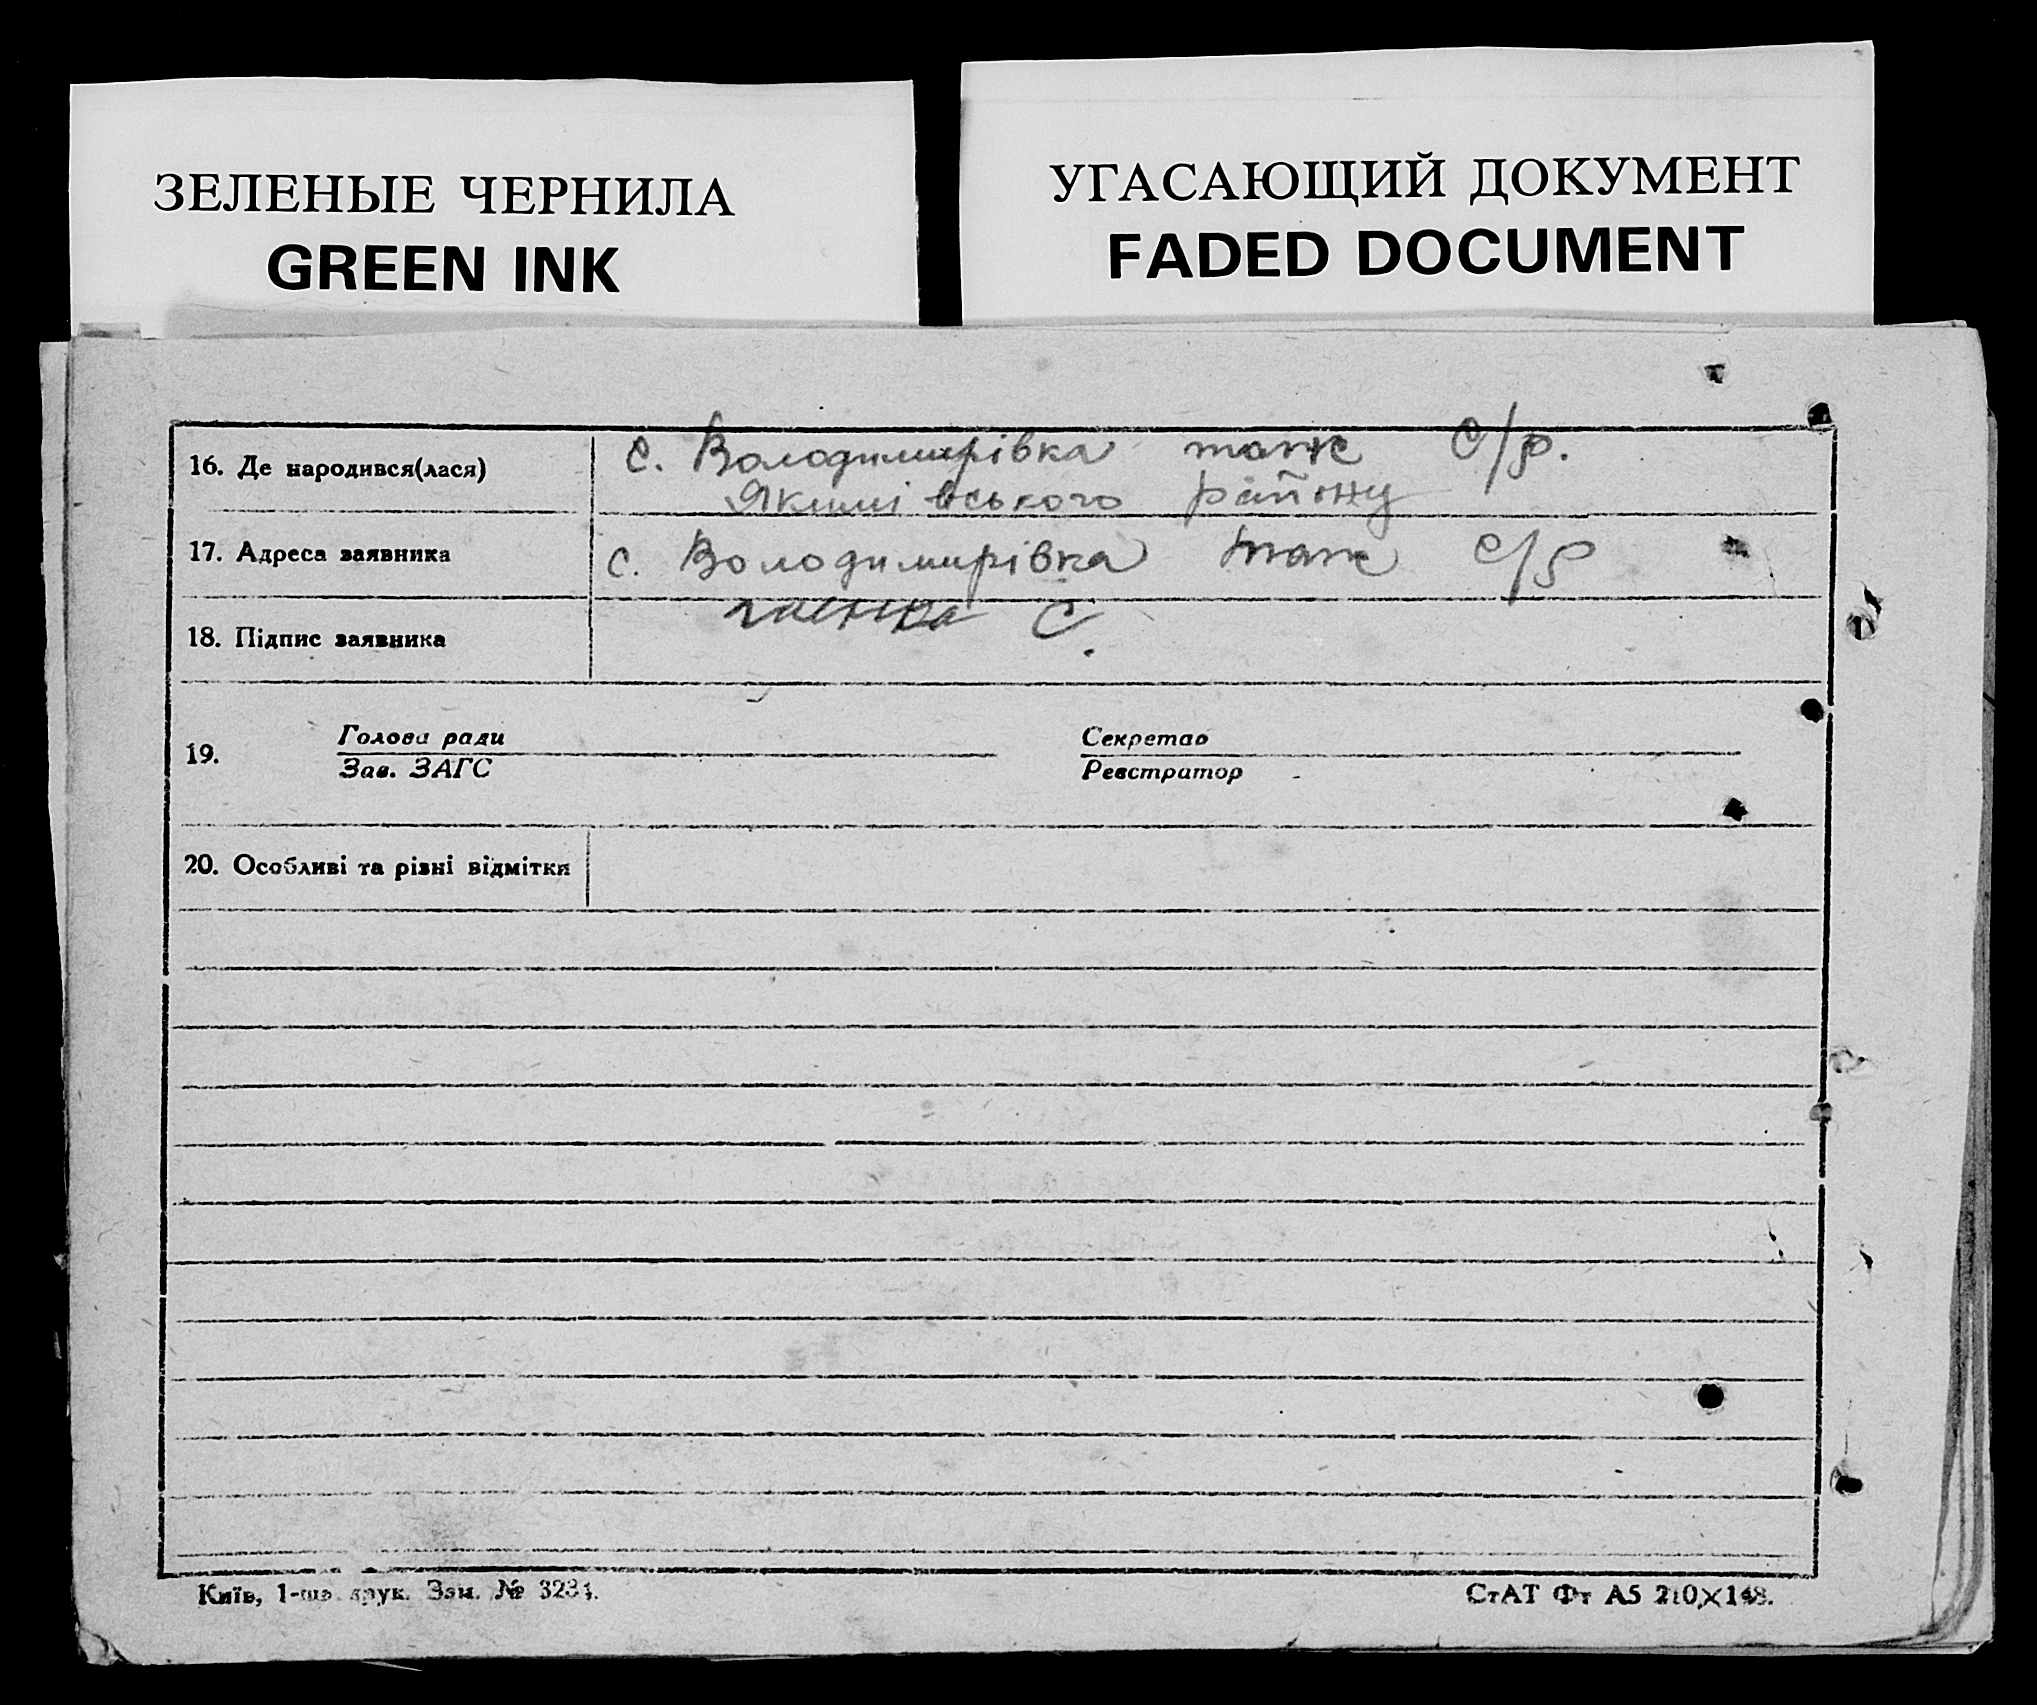 ЗЕЛЕНЫЕ ЧЕРНИЛА
GREEN INK
УГАСАЮЩИЙ ДОКУМЕНТ
FADED DOCUMENT
16. Де народився(лася)
с. Володимирівка тож С/р.
Якимівського району
17. Адреса заявника
с. Володимирівка тож с/р
18. Підпис заявника
С.
19.
Голова ради
Зав. ЗАГС
Секретар
Реєстратор
20. Особливі та різні відмітки
Київ, 1-ша друк. Зам. № 3234.
СтАТ Фт А5 210×148.